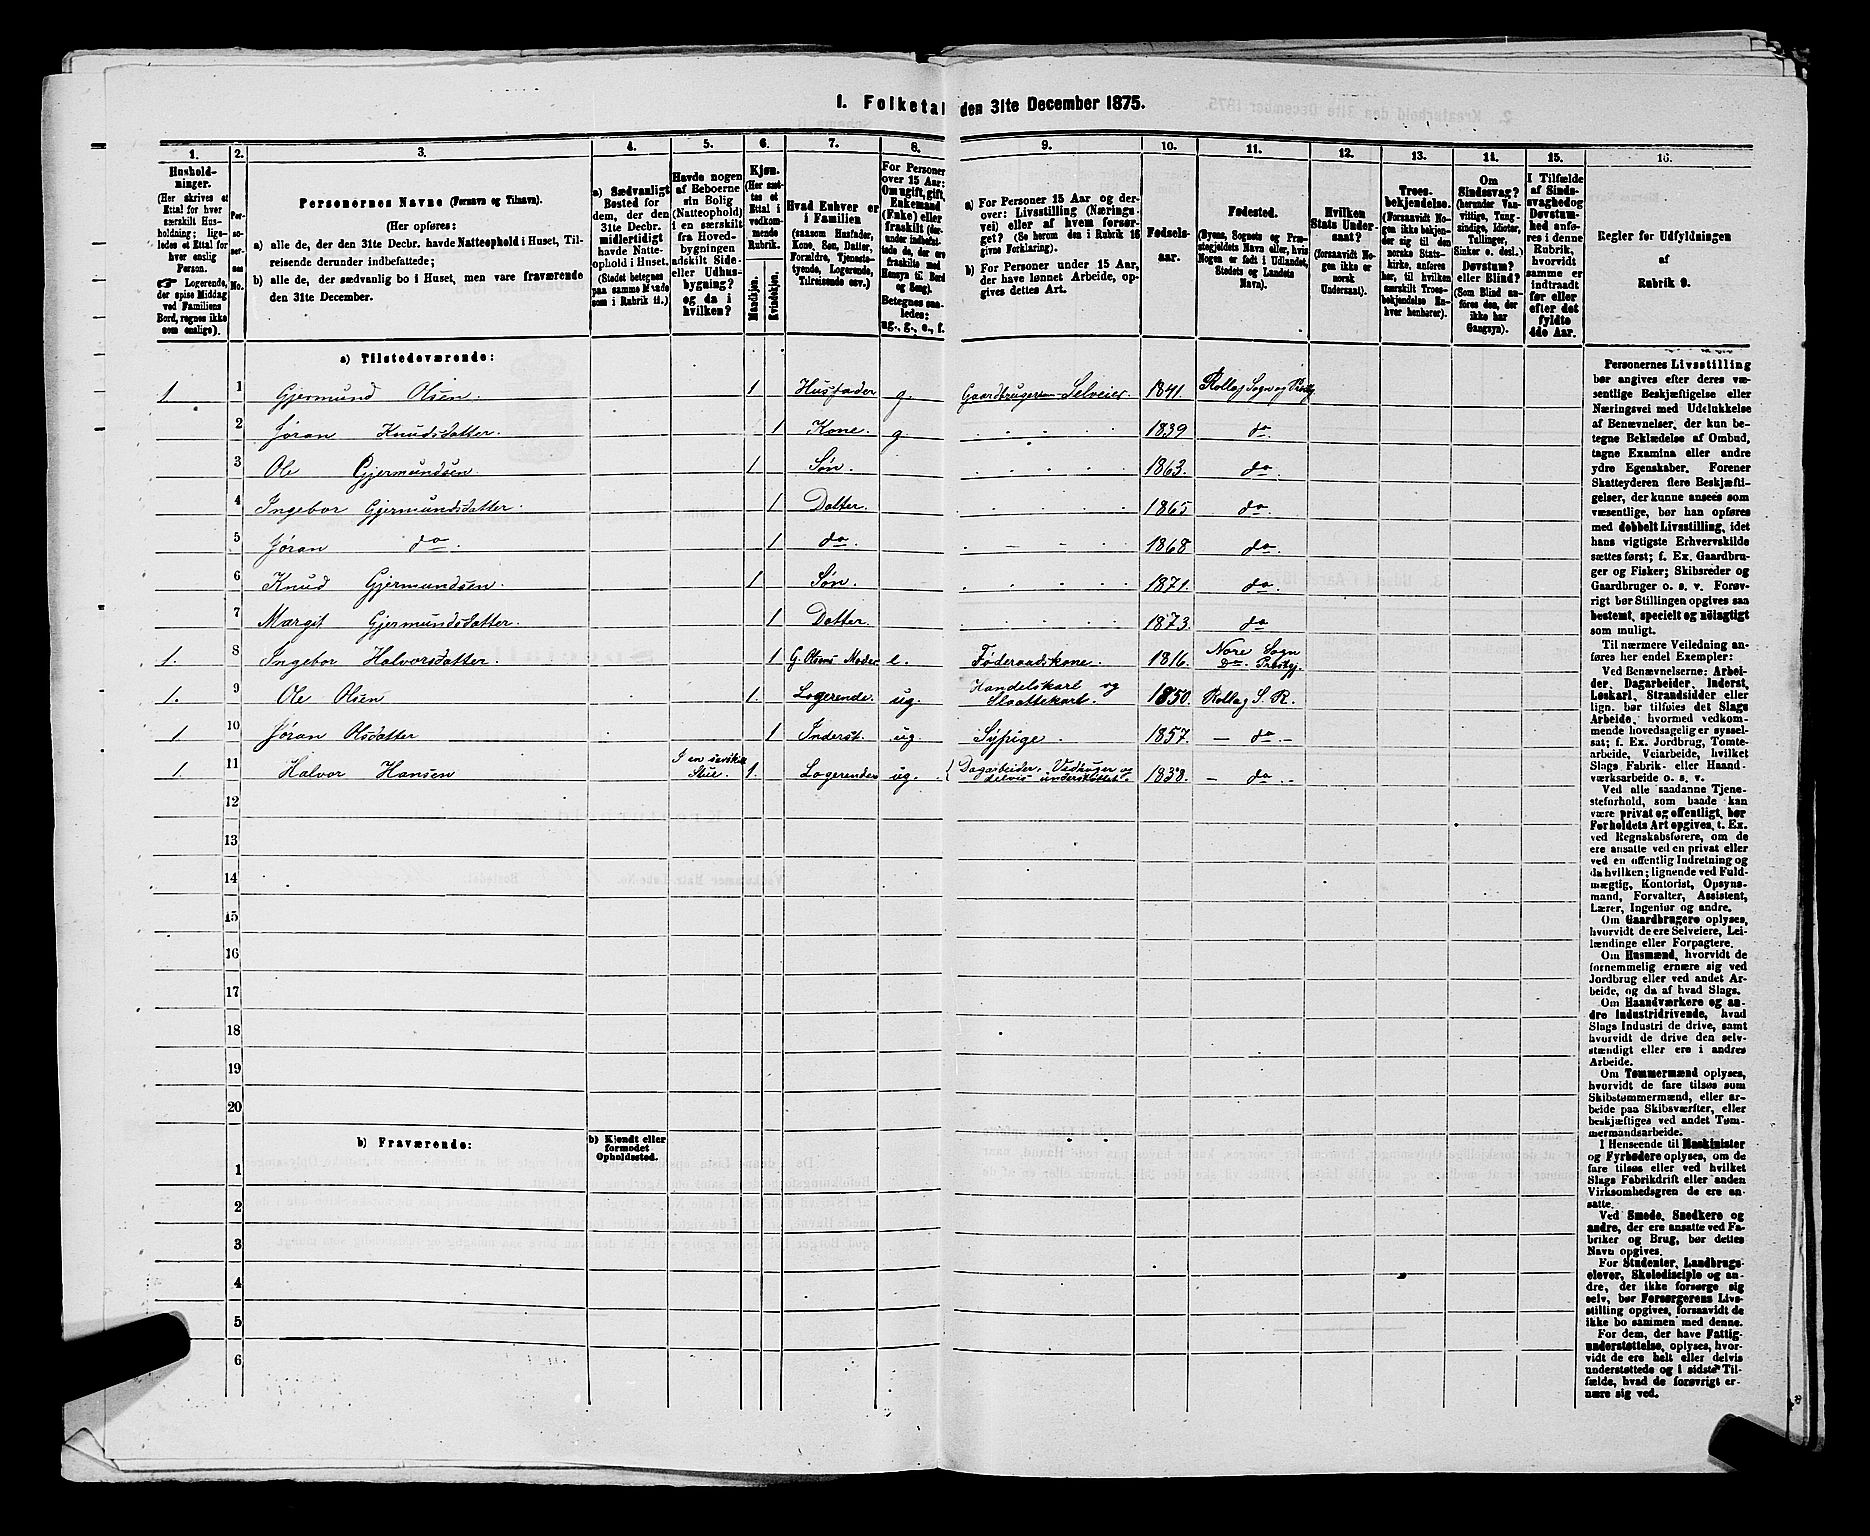 1. Folketal den 31te December 1875.
1. 2. 3. 4. 5. 6. 7. 8. 9. 10. 11. 12. 13. 14. 15. 16.
Hushold-
ninger.
(Her skrives et
Ettal for hver
særskilt Hus-
holdning; lige-
ledes et Ettal for
hver enslig
Person.
☞ Logerende,
der spise Middag
ved Familiens
Bord, regnes ikke
som enslige).
Per-
so-
ner-
nes
No.
Personernes Navne (Fornavn og Tilnavn).
(Her opføres:
a) alle de, der den 31te Decbr. havde Natteophold i Huset, Til-
reisende derunder indbefattede;
b) alle de, der sædvanlig bo i Huset, men vare fraværende
den 31te December.
a) Sædvanligt
Bosted for
dem, der den
31te Decbr.
midlertidigt
havde Natte-
ophold i Huset.
(Stedet betegnes
paa samme Maade
som i Rubrik 11.)
Havde nogen
af Beboerne
sin Bolig
(Natteophold)
i en særskilt
fra Hoved-
bygningen
adskilt Side-
eller Udhus-
bygning?
og da i
hvilken?
Kjøn.
(Her sæt-
tes et
Ettal i
vedkom-
mende
Rubrik.
Mandkjøn.
Kvindekjøn.
Hvad Enhver er
i Familien
(saasom Husfader,
Kone, Søn, Datter,
Forældre, Tjeneste-
tyende, Logerende,
Tilreisende osv.)
For Personer
over 15 Aar:
Om ugift, gift,
Enkemand
(Enke) eller
fraskilt (der-
under indbefat-
tede de, der ere
fraskilte med
Hensyn til Bord
og Seng).
Betegnes saa-
ledes:
ug., g., e., f.
a) For Personer 15 Aar og der-
over: Livsstilling (Nærings-
vei) eller af hvem forsør-
get? (Se herom den i Rubrik 16
givne Forklaring).
b) For Personer under 15 Aar,
der have lønnet Arbeide, op-
gives dettes Art.
Fødsels-
aar.
Fødested.
(Byens, Sognets og Præ-
stegjeldets Navn eller, hvis
Nogen er født i Udlandet,
Stedets og Landets
Navn).
Hvilken
Stats Under-
saat?
(forsaavidt No-
gen ikke er
norsk
Undersaat).
Troes-
bekjendelse.
(Forsaavidt No-
gen ikke bekjen-
der sig til den
norske Stats-
kirke, anføres
her, til hvilken
særskilt Troes-
bekjendelse En-
hver henhører).
Om
Sindssvag?
(herunder Van-
vittige, Tung-
sindige, Idioter,
Tullinger,
Sinker o. desl.).
Døvstum?
eller Blind?
(Som Blind an-
føres den, der
ikke har
Gangsyn).
I Tilfælde
af Sinds-
svaghed og
Døvstum-
hed anfø-
res i denne
Rubrik,
hvorvidt
samme er
indtraadt
før eller
efter det
fyldte
4de Aar.
Regler for Udfyldningen
af
Rubrik 9.
a) Tilstedeværende:
1 1 Gjermund Olsen. 1 Husfader g. Gaardbruger Selveier. 1841. Rollag Sogn og Prstgj
2 Jøran Knudsdatter. 1 Kone. g. 1839 do
3 Ole Gjermundsen. 1 Søn. 1863. do.
4 Ingebor Gjermundsdatter. 1 Datter. 1865 do.
5 Jøran do. 1 do. 1868 do.
6 Knud Gjermundsen. 1 Søn. 1871. do.
7 Margit Gjermundsdatter. 1 Datter. 1873. do
1. 8 Ingebor Halvorsdatter. 1 G. Olsens Moder e. Føderaadskone. 1816. Nore Sogn
Do. Prestgj.
1. 9 Ole Olsen 1. Logerende. ug. Handelskarl og
Slaattekarl. 1850. Rollag S. P.
1. 10 Jøran Olsdatter 1 Inderst. ug Sypige. 1857. – do –
1. 11 Halvor Hansen I en særskilt
Stue. 1. Logerende ug. Dagarbeider, Vedhuger og
delvis understøttet. 1838. – do –
12
13
14
15
16
17
18
19
20
b) Fraværende:
b) Kjendt eller
formodet
Opholdssted.
1
2
3
4
5
6
Personernes Livsstilling
bør angives efter deres væ-
sentlige Beskjæftigelse eller
Næringsvei med Udelukkelse
af Benævnelser, der kun be-
tegne Beklædelse af Ombud,
tagne Examina eller andre
ydre Egenskaber. Forener
Skatteyderen flere Beskjæfti-
gelser, der kunne ansees som
væsentlige, bør han opføres
med dobbelt Livsstilling, idet
hans vigtigste Erhvervskilde
sættes først; f. Ex. Gaardbru-
ger og Fisker; Skibsreder og
Gaardbruger o. s. v. Forøv-
rigt bør Stillingen opgives saa
bestemt, specielt og nøiagtigt
som muligt.
Til nærmere Veiledning an-
føres her endel Exempler:
Ved Benævnelserne: Arbei-
der, Dagarbeider, Inderst,
Løskarl, Strandsidder eller
lign. bør tilføies det Slags
Arbeide, hvormed vedkom-
mende hovedsagelig er syssel-
sat; f. Ex. Jordbrug, Tomte-
arbeide, Veiarbeide, hvilket
Slags Fabrik- eller Haand-
værksarbeide o. s. v.
Ved alle saadanne Tjene-
steforhold, som baade kan
være privat og offentligt, bør
Forholdets Art opgives, t. Ex.
ved Regnskabsførere, om de
ere ansatte ved en privat eller
ved en offentlig Indretning og
da hvilken; lignende ved Fuld-
mægtig, Kontorist, Opsyns-
mand, Forvalter, Assistent,
Lærer, Ingeniør og andre.
Om Gaardbrugere oplyses,
hvorvidt de ere Selveiere, Lei-
lændinge eller Forpagtere.
Om Husmænd, hvorvidt de
fornemmelig ernære sig ved
Jordbrug eller ved andet Ar-
beide, og da af hvad Slags.
Om Haandværkere og an-
dre Industridrivende, hvad
Slags Industri de drive, samt
hvorvidt de drive den selv-
stændigt eller ere i andres
Arbeide.
Om Tømmermænd oplyses,
hvorvidt de fare tilsøs som
Skibstømmermænd, eller ar-
beide paa Skibsværfter, eller
beskjæftiges ved andet Tøm-
mermandsarbeide.
I Henseende til Maskinister
og Fyrbødere oplyses, om de
fare tilsøs eller ved hvilket
Slags Fabrikdrift eller anden
Virksomhedsgren de ere an-
satte.
Ved Smede, Snedkere og
andre, der ere ansatte ved Fa-
briker og Brug, bør dettes
Navn opgives.
For Studenter, Landbrugs-
elever, Skoledisciple og an-
dre, der ikke forsørge sig
selv, bør Forsørgerens Livs-
stilling opgives, forsaavidt de
ikke bo sammen med denne.
For dem, der have Fattig-
understøttelse, oplyses, hvor-
vidt de ere helt eller delvis
understøttede og i sidste Til-
fælde, hvad de forøvrigt er-
nære sig ved.